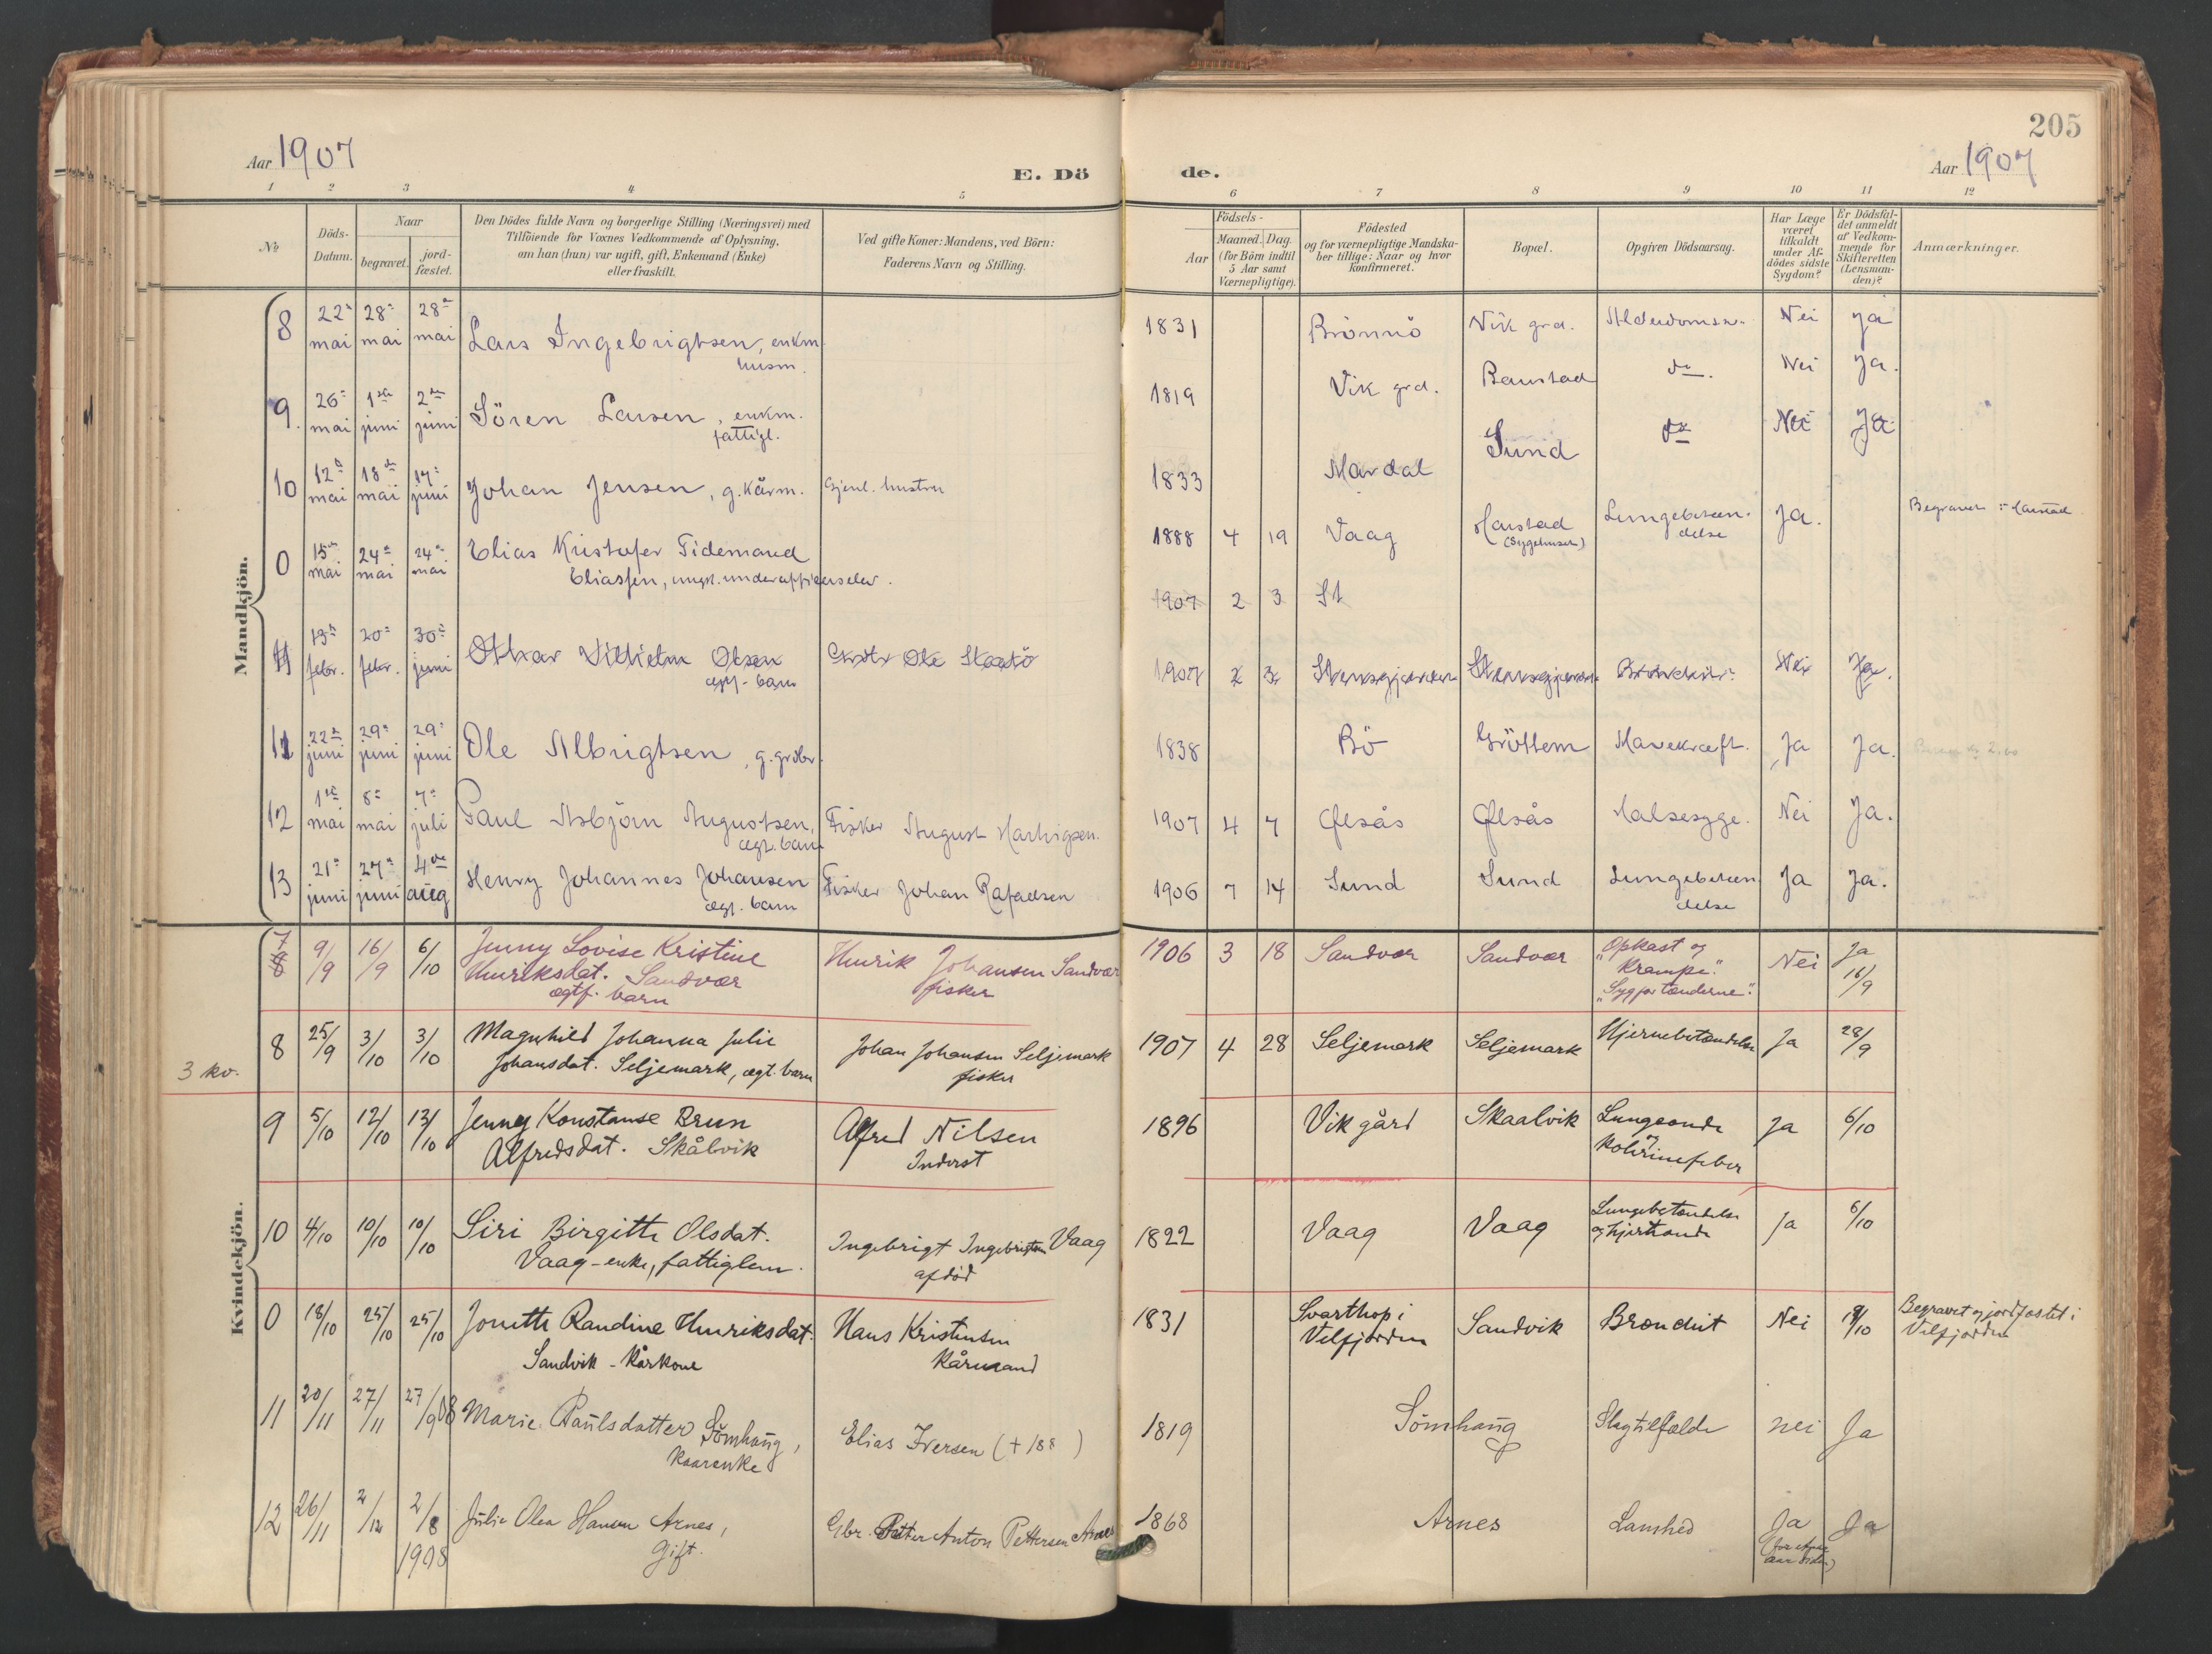 205
Aar 1907
E. Dö
de.
Aar 1907
1 2 3 4 5 6 7 8 9 10 11 12
No
Döds-Datum.
Naar
begravet.
jord-fæstet.
Den Dödes fulde Navn og borgerlige Stilling (Næringsvei) med
Tilföiende for Voxnes Vedkommende af Oplysning,
om han (hun) var ugift, gift, Enkemand (Enke)
eller fraskilt.
Ved gifte Koner: Mandens, ved Börn:
Faderens Navn og Stilling.
Födsels-
Aar
Maaned. Dag.
(for Börn indtil
5 Aar samt
Værnepligtige).
Födested
og for værnepligtige Mandska-
ber tillige: Naar og hvor
konfirmeret.
Bopæl.
Opgiven Dödsaarsag.
Har Læge
været
tilkaldt
under Af-
dödes sidste
Sygdom?
Er Dödsfal-
det anmeldt
af Vedkom-
mende for
Skifteretten
(Lensman-
den)?
Anmærkninger.
Mandkjön.
8 22 mai 28 mai 28 mai Lars Ingebrigtsen, enkm. husm. 1831 Brönnö Vik grd. Alderdomsv. Nei Ja
9. 26 mai 1ste juni 2den juni Sören Larsen, enkm. fattigl. 1819 Vik grd. Baustad do. Nei Ja.
10 12 mai 18 mai 17 juni Johan Jensen, g. kårm. Gjenl. hustru 1833 Mardal Sund do Nei Ja
0 15 mai 24 mai 24 mai Elias Kristofer Tidemand
Eliassen, ungk. underofficerselev. 1888 4 19 Vaag Harstad (Sygehuset) Lungebetæn-delse Ja. Begravet i Harstad
1907 2 3 St
11 19 febr. 20 febr. 30 juni Othar Vilhelm Olsen ægt. barn Ole 1907 2 3 Nei Ja.
11 22 juni 29 juni 29 juni Ole Albrigtsen, g. grdbr. 1838 Bö Gröttem Mavekræft. Ja Ja.
12 1ste mai 8 mai 7 juli Paul Asbjörn Augustsen, ægt. barn Fisker August Hartvigsen. 1907 4 7 Ølsås Ølsås Halsesyge. Nei Ja.
13 21 juni 27 juni 4de aug Henry Johannes Johansen ægt. barn Fisker Johan Rafaelsen 1906 7 14 Sund Sund Lungebetæn-delse Ja Ja.
Kvindekjön.
3 kv.
7 8 9/9 16/9 6/10 Jenny Lovise Kristine
Henriksdat. Sandvær
ægtf. barn Henrik Johansen Sandvær
fisker 1906 3 18 Sandvær Sandvær "Opkast og
Krampe."
"Syg for tænderne". Nei Ja 16/9
8 25/9 3/10 3/10 Magnhild Johanna Julie
Johansdat. Seljemark, ægt. barn Johan Johansen Seljemark
fisker 1907 4 28 Seljemark Seljemark Hjernebetændelse Ja 28/9
9 5/10 12/10 13/10 Jenny Konstanse Brun
Alfredsdat. Skålvik Alfred Nilsen
Inderst 1896 Vik gård Skaalvik Lungeonde
og
Kolerinefeber Ja 6/10
10 4/10 10/10 10/10 Siri Birgitte Olsdat.
Vaag - enke, fattiglem. Ingebrigt Ingebrigtsen Vaag
afdöd 1822 Vaag Vaag Lungebetændelse
og hjerteonde Ja 6/10
0 18/10 25/10 25/10 Jonette Randine Henriksdat.
Sandvik - Kårkone Hans Kristensen
Kårmand 1831 Svarthop i
Velfjorden Sandvik Bronchit Nei 19/10 Begravet og jordfæstet i
Velfjorden
11 20/11 27/11 27/9 08 Marie Paulsdatter Sömhaug,
Kaarenke Elias Iversen (+ 188 ) 1819 Sömhaug Slagtilfælde nei Ja
12 26/11 2/12 2/8 1908 Julie Olea Hansen Arnes,
Gift. Gbr. Petter Anton Pettersen Arnes 1868 Arnes Lamhed Ja Ja